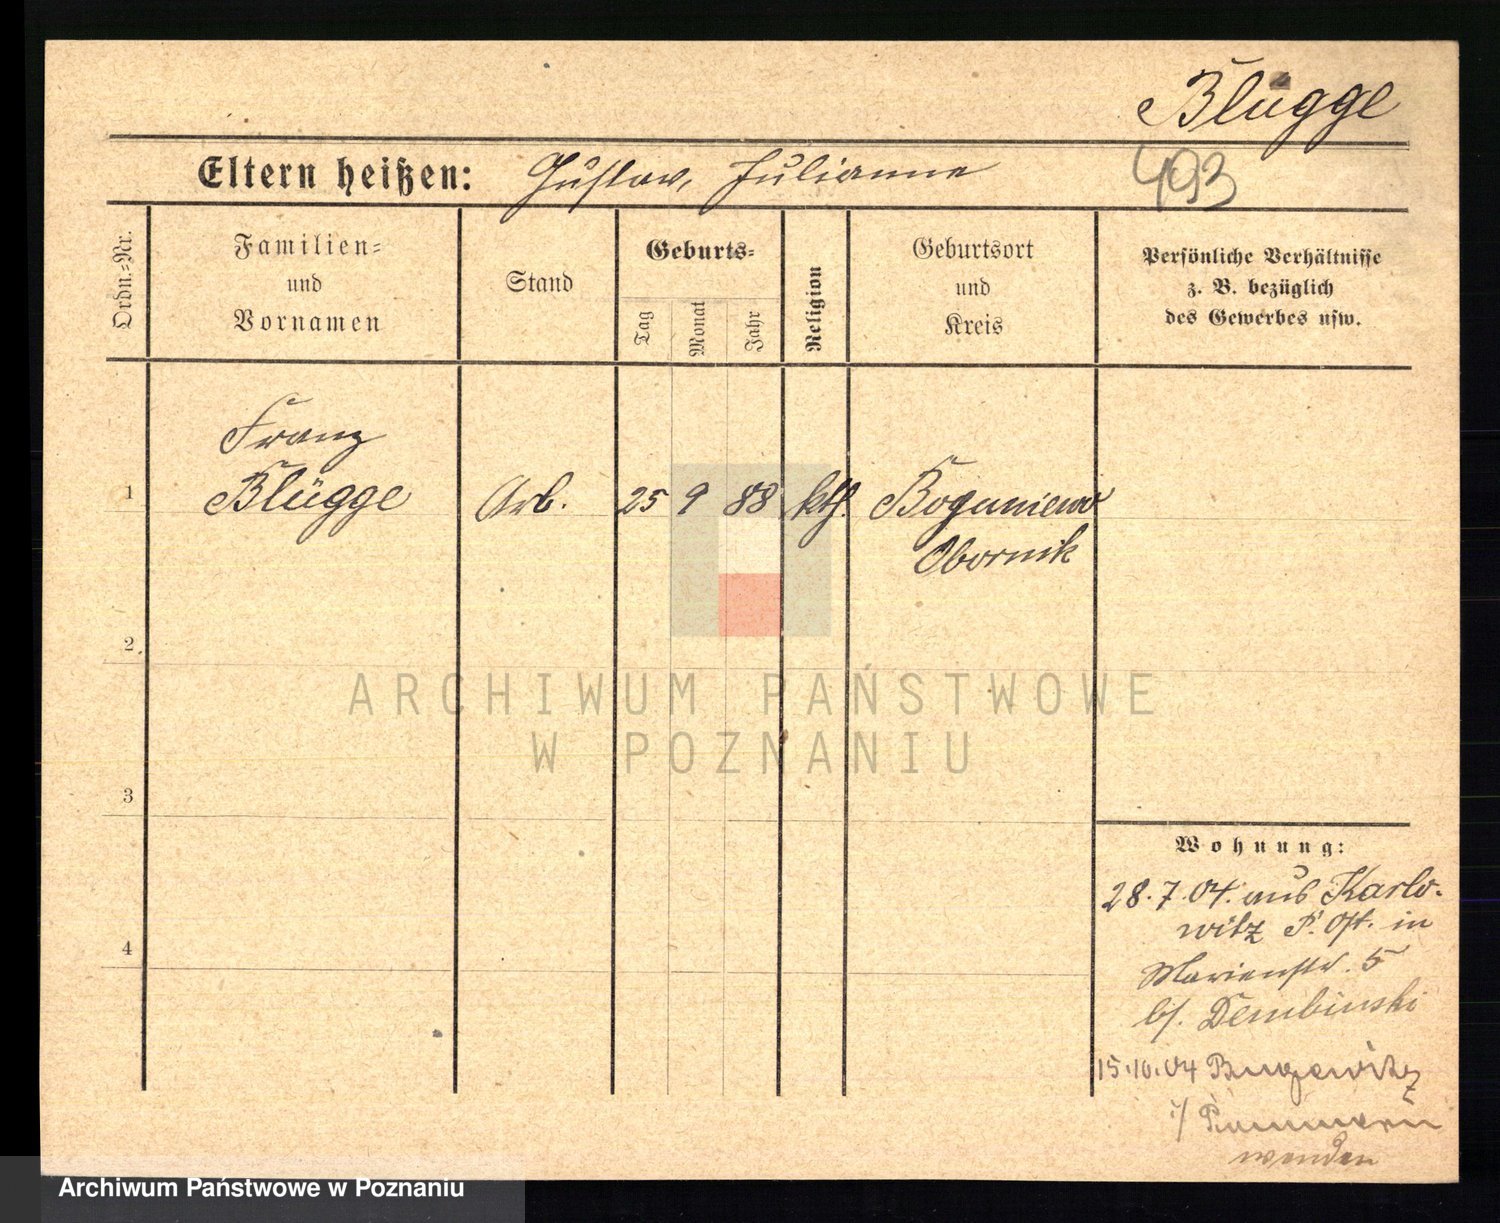 Blügge
Eltern heißen: Gustav, Julianne 493
Ordn.=Nr.
Familien=
und
Vornamen
Stand
Geburts=
Tag
Monat
Jahr
Religion
Geburtsort
und
Kreis
Persönliche Verhältnisse
z. B. bezüglich
des Gewerbes usw.
Franz
1 Blügge Arb. 25 9 88 kth. Boguniewo
Obornik
2
3
4
ARCHIWUM PAŃSTWOWE
W POZNANIU
Wohnung:
28.7.04. aus Karlo-
witz P. Ost. in
Marienstr. 5
b/. Dembinski
15.10.04 Bugewitz
i/ Pommern
wenden
Archiwum Państwowe w Poznaniu